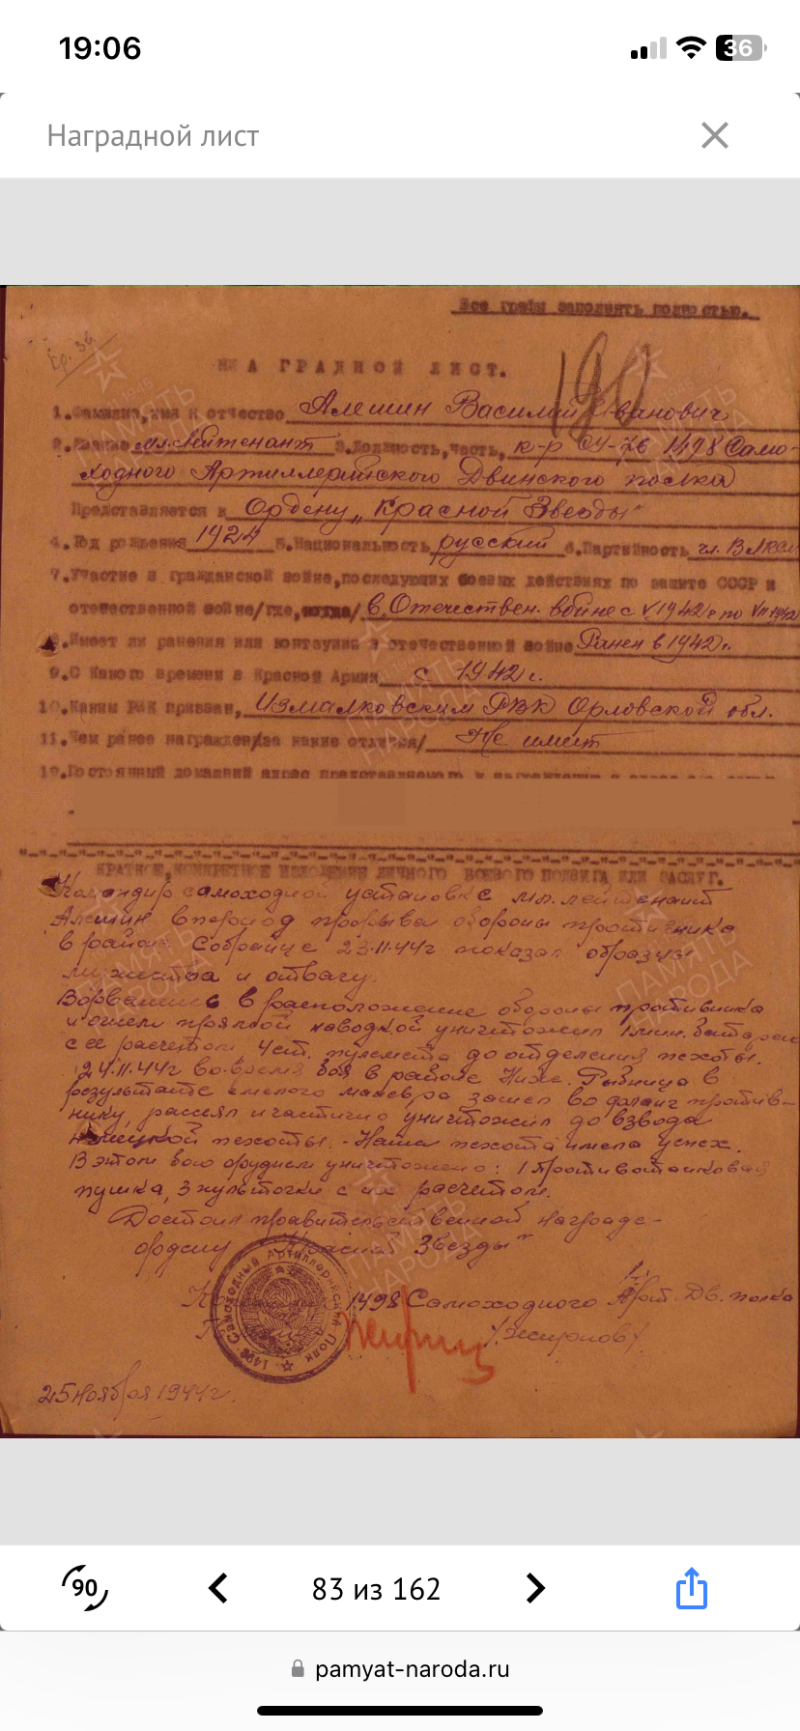 19:06
36
Наградной лист
Все графы заполнять полностью.
Кр. Зв
НА ГРАДНОЙ ЛИСТ.
190
1. Фамилия, имя и отчество Алешин Василий Иванович
2. Звание мл. лейтенант 3. Должность, часть, к-р СУ-76 1498 Само-
ходного Артиллерийского Двинского полка
Представляется к Ордену „Красной Звезды"
4. Год рождения 1924 5. Национальность русский 6. Партийность чл. ВЛКСМ
7. Участие в гражданской войне, последующих боевых действиях по защите СССР и
отечественной войне/где, когда/ в Отечествен. войне с V 1942 г по VII 1942
8. Имеет ли ранения или контузии в отечественной войне Ранен в 1942 г.
9. С какого времени в Красной Армии с 1942 г.
10. Каким РВК призван, Измалковским РВК Орловской обл.
11. Чем ранее награжден/за какие отличия/ Не имеет
12. Постоянный домашний адрес представляемого к награждению и адрес его семьи
КРАТКОЕ, КОНКРЕТНОЕ ИЗЛОЖЕНИЕ ЛИЧНОГО БОЕВОГО ПОДВИГА ИЛИ ЗАСЛУГ.
Командир самоходной установки мл. лейтенант
Алешин в период прорыва обороны противника
в районе Собранце 23.11.44г показал образцы
мужества и отвагу.
Ворвавшись в расположение обороны противника
и огнем прямой наводкой уничтожил 1 мин. батарею
с ее расчетом 4 ст. пулемета до отделения пехоты.
24.11.44г во время боя в районе Ниж. Рыбница в
результате смелого маневра зашел во фланг против-
нику, рассеял и частично уничтожил до взвода
немецкой пехоты. - Наша пехота имела успех.
В этом бою орудием уничтожено: 1 противотанковая
пушка, 3 пульточки с их расчетом.
Достоин правительственной награде-
ордену „Красной Звезды"
1498 Самоходного Арт. Дв. полка
/Жирнов/
1498 Самоходный Артиллерийский Полк
25 ноября 1944г.
ПАМЯТЬ НАРОДА
90
83 из 162
pamyat-naroda.ru